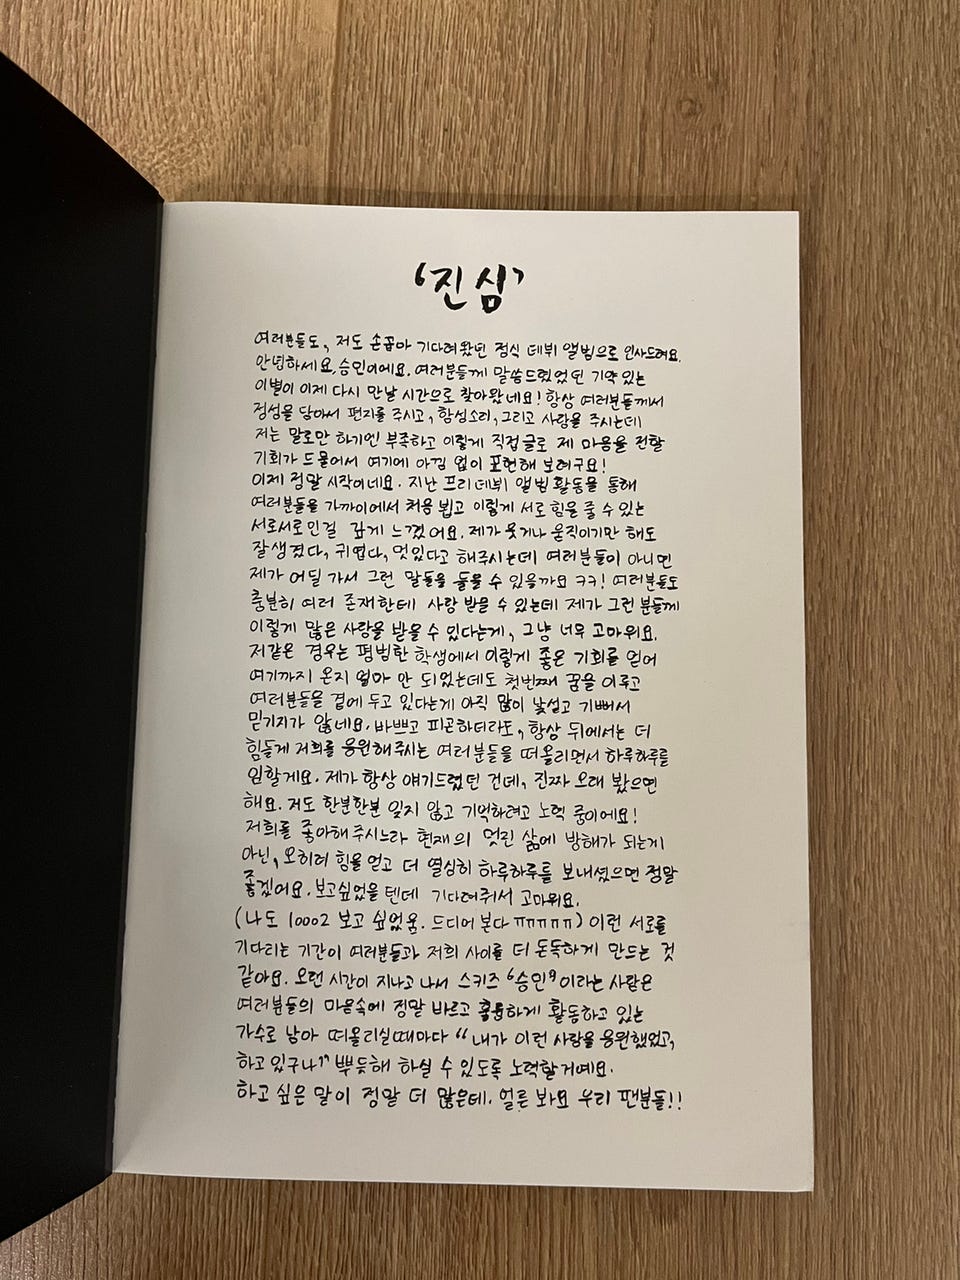 '진심'
여러분들도, 저도 손꼽아 기다려왔던 정식 데뷔 앨범으로 인사드려요.
안녕하세요, 승민이에요. 여러분들께 말씀드렸었던 기약 있는
이별이 이제 다시 만날 시간으로 찾아왔네요! 항상 여러분들께서
정성을 담아서 편지를 주시고, 함성소리, 그리고 사랑을 주시는데
저는 말로만 하기엔 부족하고 이렇게 직접 글로 제 마음을 전할
기회가 드물어서 여기에 아낌 없이 표현해 보려구요!
이제 정말 시작이네요. 지난 프리데뷔 앨범 활동을 통해
여러분들을 가까이에서 처음 뵙고 이렇게 서로 힘을 줄 수 있는
서로서로인걸 깊게 느꼈어요. 제가 웃거나 움직이기만 해도
잘생겼다, 귀엽다, 멋있다고 해주시는데 여러분들이 아니면
제가 어딜 가서 그런 말들을 들을 수 있을까요 ㅋㅋ! 여러분들도
충분히 여러 존재한테 사랑 받을 수 있는데 제가 그런 분들께
이렇게 많은 사랑을 받을 수 있다는게, 그냥 너무 고마워요.
저같은 경우는 평범한 학생에서 이렇게 좋은 기회를 얻어
여기까지 온지 얼마 안 되었는데도 첫번째 꿈을 이루고
여러분들을 곁에 두고 있다는게 아직 많이 낯설고 기뻐서
믿기지가 않네요. 바쁘고 피곤하더라도, 항상 뒤에서는 더
힘들게 저희를 응원해주시는 여러분들을 떠올리면서 하루하루를
임할게요. 제가 항상 얘기드렸던 건데, 진짜 오래 봤으면
해요. 저도 한분한분 잊지 않고 기억하려고 노력 중이에요!
저희를 좋아해 주시느라 현재의 멋진 삶에 방해가 되는게
아닌, 오히려 힘을 얻고 더 열심히 하루하루를 보내셨으면 정말
좋겠어요. 보고싶었을 텐데 기다려줘서 고마워요.
(나도 10002 보고 싶었움. 드디어 본다 ㅠㅠㅠㅠㅠ) 이런 서로를
기다리는 기간이 여러분들과 저희 사이를 더 돈독하게 만드는 것
같아요. 오랜 시간이 지나고 나서 스키즈 '승민'이라는 사람은
여러분들의 마음속에 정말 바르고 훌륭하게 활동하고 있는
가수로 남아 떠올리실때마다 "내가 이런 사람을 응원했었고,
하고 있구나!" 뿌듯해 하실 수 있도록 노력할거예요.
하고 싶은 말이 정말 더 많은데. 얼른 봐요 우리 팬분들!!